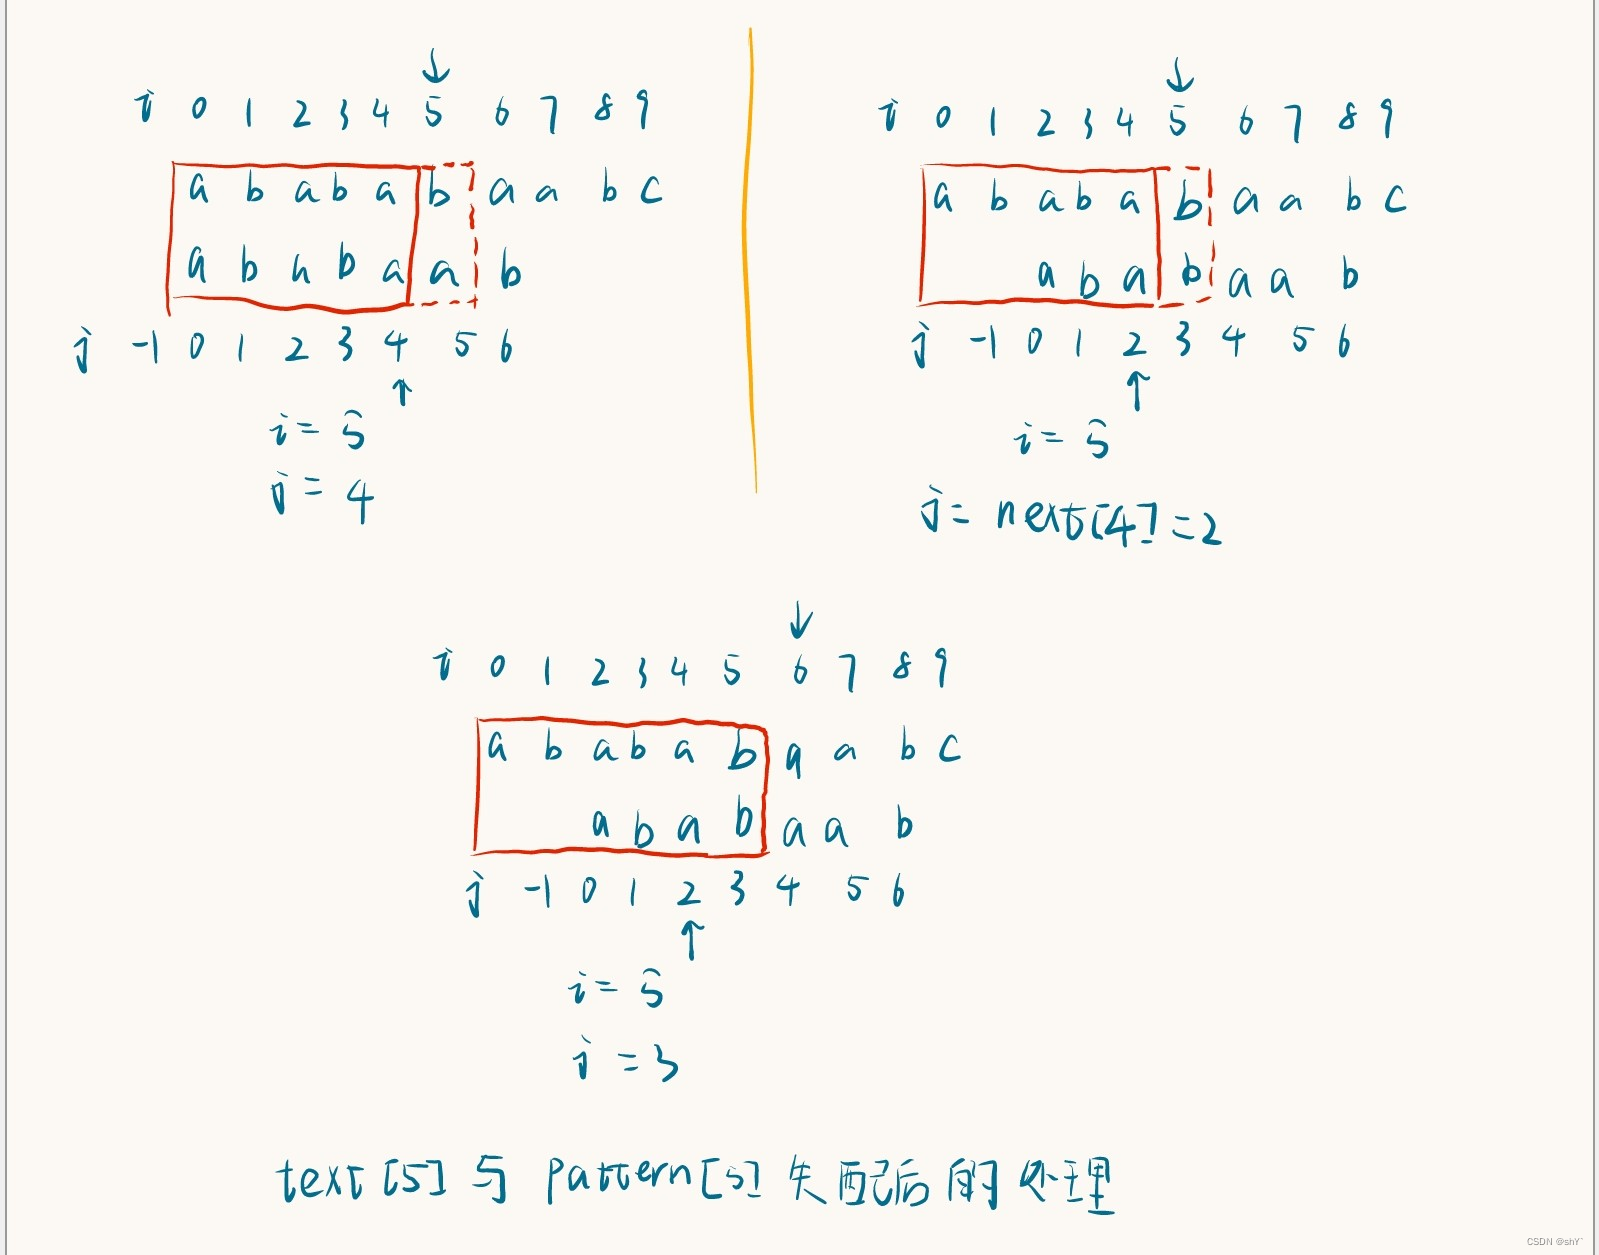 i 0 1 2 3 4 5 6 7 8 9
a b a b a b a a b c
a b a b a a b
j -1 0 1 2 3 4 5 6
i = 5
j = 4
i 0 1 2 3 4 5 6 7 8 9
a b a b a b a a b c
a b a b a a b
j -1 0 1 2 3 4 5 6
i = 5
j = next[4] = 2
i 0 1 2 3 4 5 6 7 8 9
a b a b a b a a b c
a b a b a a b
j -1 0 1 2 3 4 5 6
i = 5
j = 3
text[5] 与 pattern[5] 失配后的处理
CSDN @shY`